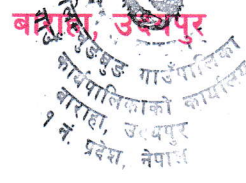 बाराहा, उदयपुर
गाउँपालिका
कार्यपालिकाको कार्यालय
बाराहा, उदयपुर
१ नं. प्रदेश, नेपाल